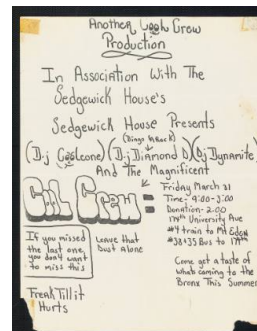 Another Cool Crew
Production
In Association With The
Sedgewick House's
Sedgewick House Presents
(D.j Cooleone) (D.j Diamond D) (D.j Dynamite)
And The Magnificent
Cool Crew
Friday March 31
Time- 9:00-3:00
Donation- 2.00
University Ave
#4 train to Mt Eden
#38+35 Bus to
If you missed
the last one,
you don't want
to miss this
Leave that
Dust alone
Come get a taste of
whats coming to the
Bronx This Summer
Freak Till it
Hurts